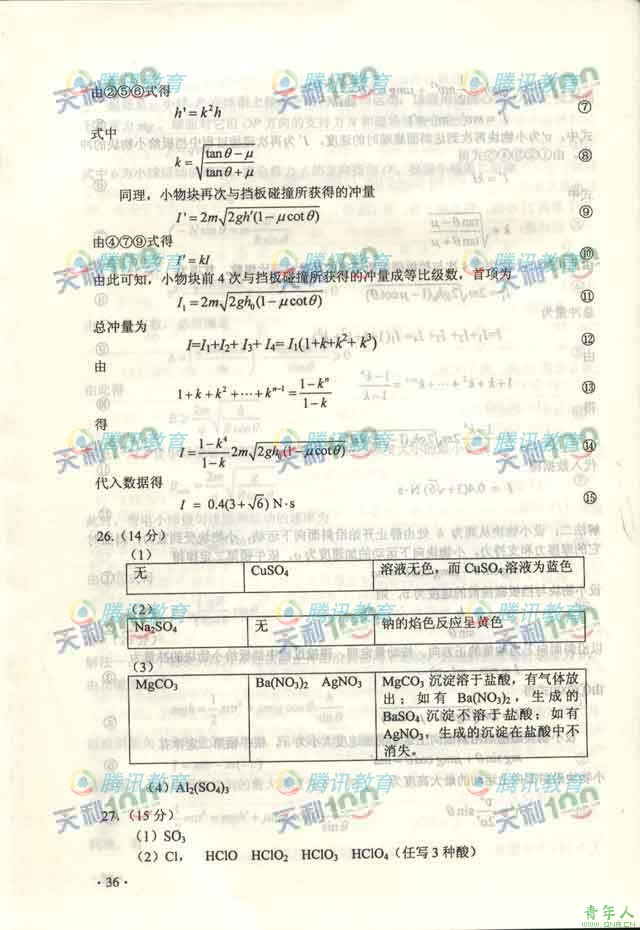 由②⑤⑥式得
h'=k²h ⑦
式中
k=√((tanθ-μ)/(tanθ+μ)) ⑧
同理，小物块再次与挡板碰撞所获得的冲量
I'=2m√(2gh'(1-μcotθ)) ⑨
由④⑦⑨式得
I'=kI ⑩
由此可知，小物块前4次与挡板碰撞所获得的冲量成等比级数，首项为
I₁=2m√(2gh₀(1-μcotθ)) ⑪
总冲量为
I=I₁+I₂+I₃+I₄=I₁(1+k+k²+k³) ⑫
由
1+k+k²+⋯+kⁿ⁻¹=(1-kⁿ)/(1-k) ⑬
得
I=(1-k⁴)/(1-k) 2m√(2gh₀(1-μcotθ)) ⑭
代入数据得
I = 0.4(3+√6) N·s ⑮
26.（14分）
（1）
无 CuSO₄ 溶液无色，而 CuSO₄ 溶液为蓝色
（2）
Na₂SO₄ 无 钠的焰色反应呈黄色
（3）
MgCO₃ Ba(NO₃)₂ AgNO₃ MgCO₃ 沉淀溶于盐酸，有气体放
出；如有 Ba(NO₃)₂，生成的
BaSO₄ 沉淀不溶于盐酸；如有
AgNO₃，生成的沉淀在盐酸中不
消失。
（4）Al₂(SO₄)₃
27.（15分）
（1）SO₃
（2）Cl， HClO HClO₂ HClO₃ HClO₄（任写3种酸）
·36·
腾讯教育
天利100
青年人
WWW.QNR.CN